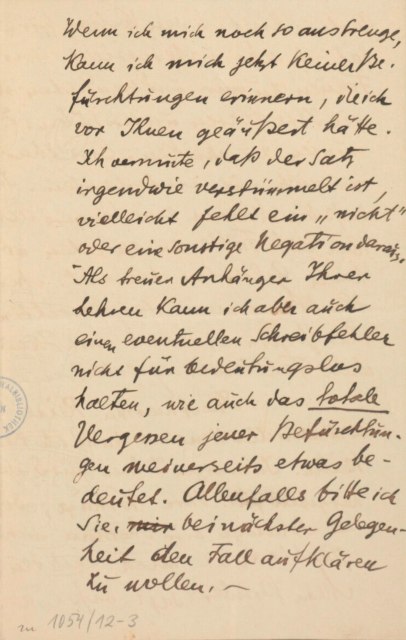 Wenn ich mich noch so anstrenge,
kann ich mich jetzt keiner Be-
fürchtungen erinnern, die ich
vor Ihnen geäußert hätte.
Ich vermute, daß der Satz
irgendwie verstümmelt ist,
vielleicht fehlt ein „nicht“
oder eine sonstige Negation daraus.
Als treuer Anhänger Ihrer
Lehren kann ich aber auch
einen eventuellen Schreibfehler
nicht für bedeutungslos
halten, wie auch das totale
Vergessen jener Befürchtun-
gen meinerseits etwas be-
deutet. Allenfalls bitte ich
Sie, mir bei nächster Gelegen-
heit den Fall aufklären
zu wollen. –
1054/12-3